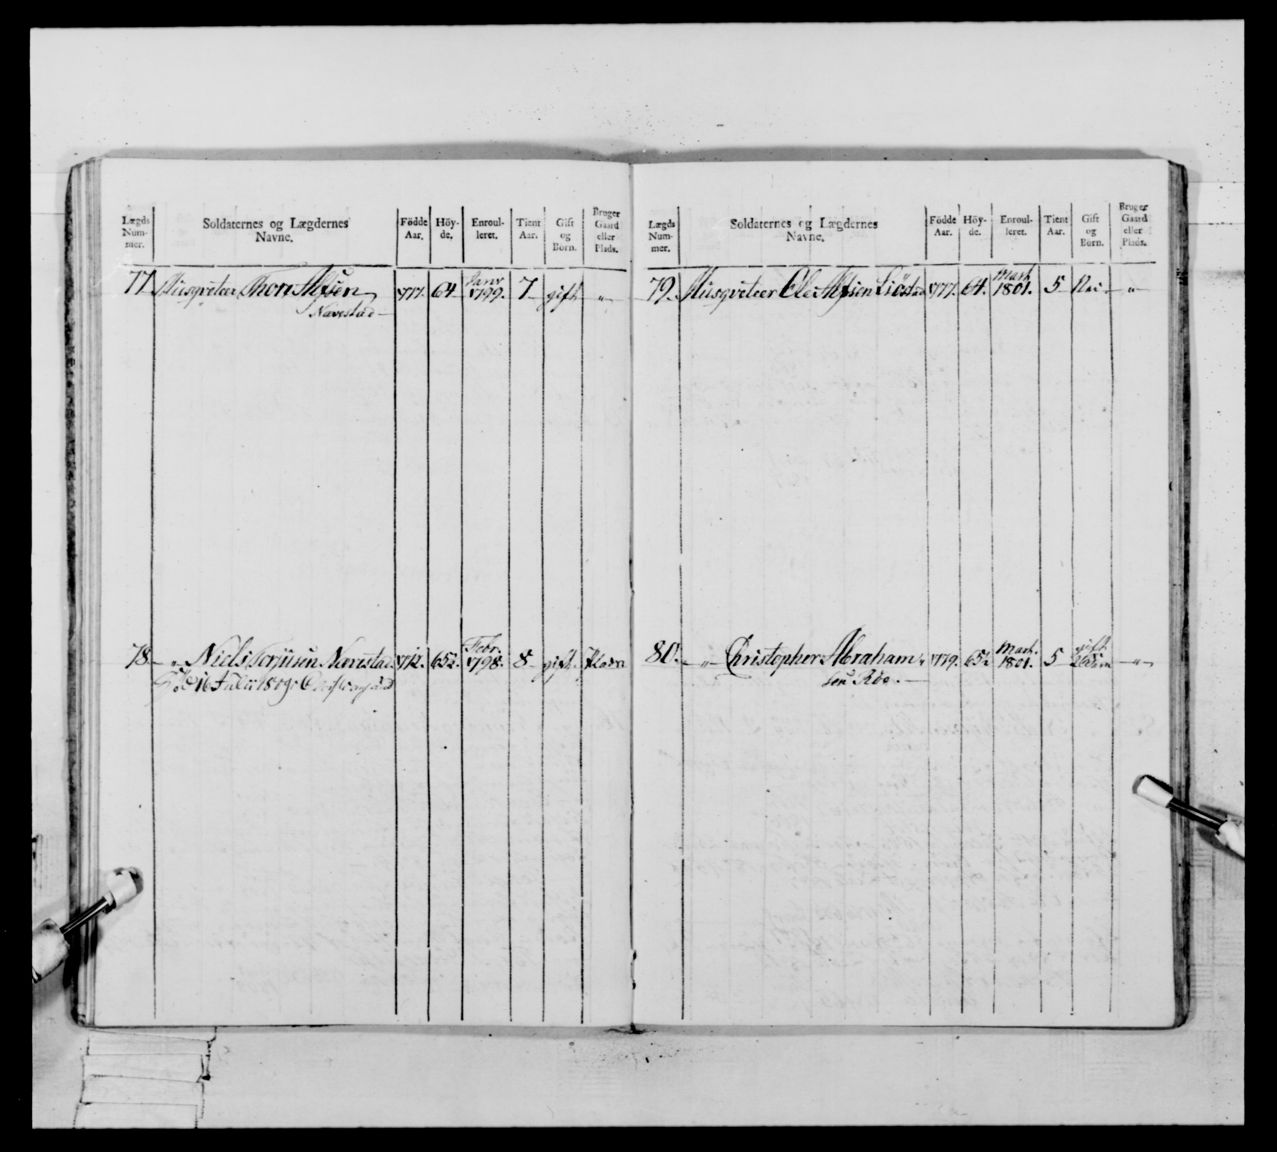 Lægds Num- mer. Soldaternes og Lægdernes Navne. Födde Aar. Höy- de. Enroul- leret. Tient Aar. Gift og Börn. Bruger Gaard eller Plads.
77 Musqveteer Thore Alfsen 1777. 64. Janv. 1799. 7 gift „
Navestad
78 „ Niels Torjusen Navestad 1772. 65½. Febr. 1798. 8 gift
16 Julii 1809
Lægds Num- mer. Soldaternes og Lægdernes Navne. Födde Aar. Höy- de. Enroul- leret. Tient Aar. Gift og Börn. Bruger Gaard eller Plads.
79. Musqveteer Ole Alfsen 1777. 64. Mart. 1801. 5 Nei „
80. „ Christopher Abraham- 1779. 65½ Mart. 1801. 5 gift 2 Börn „
sen Röe.